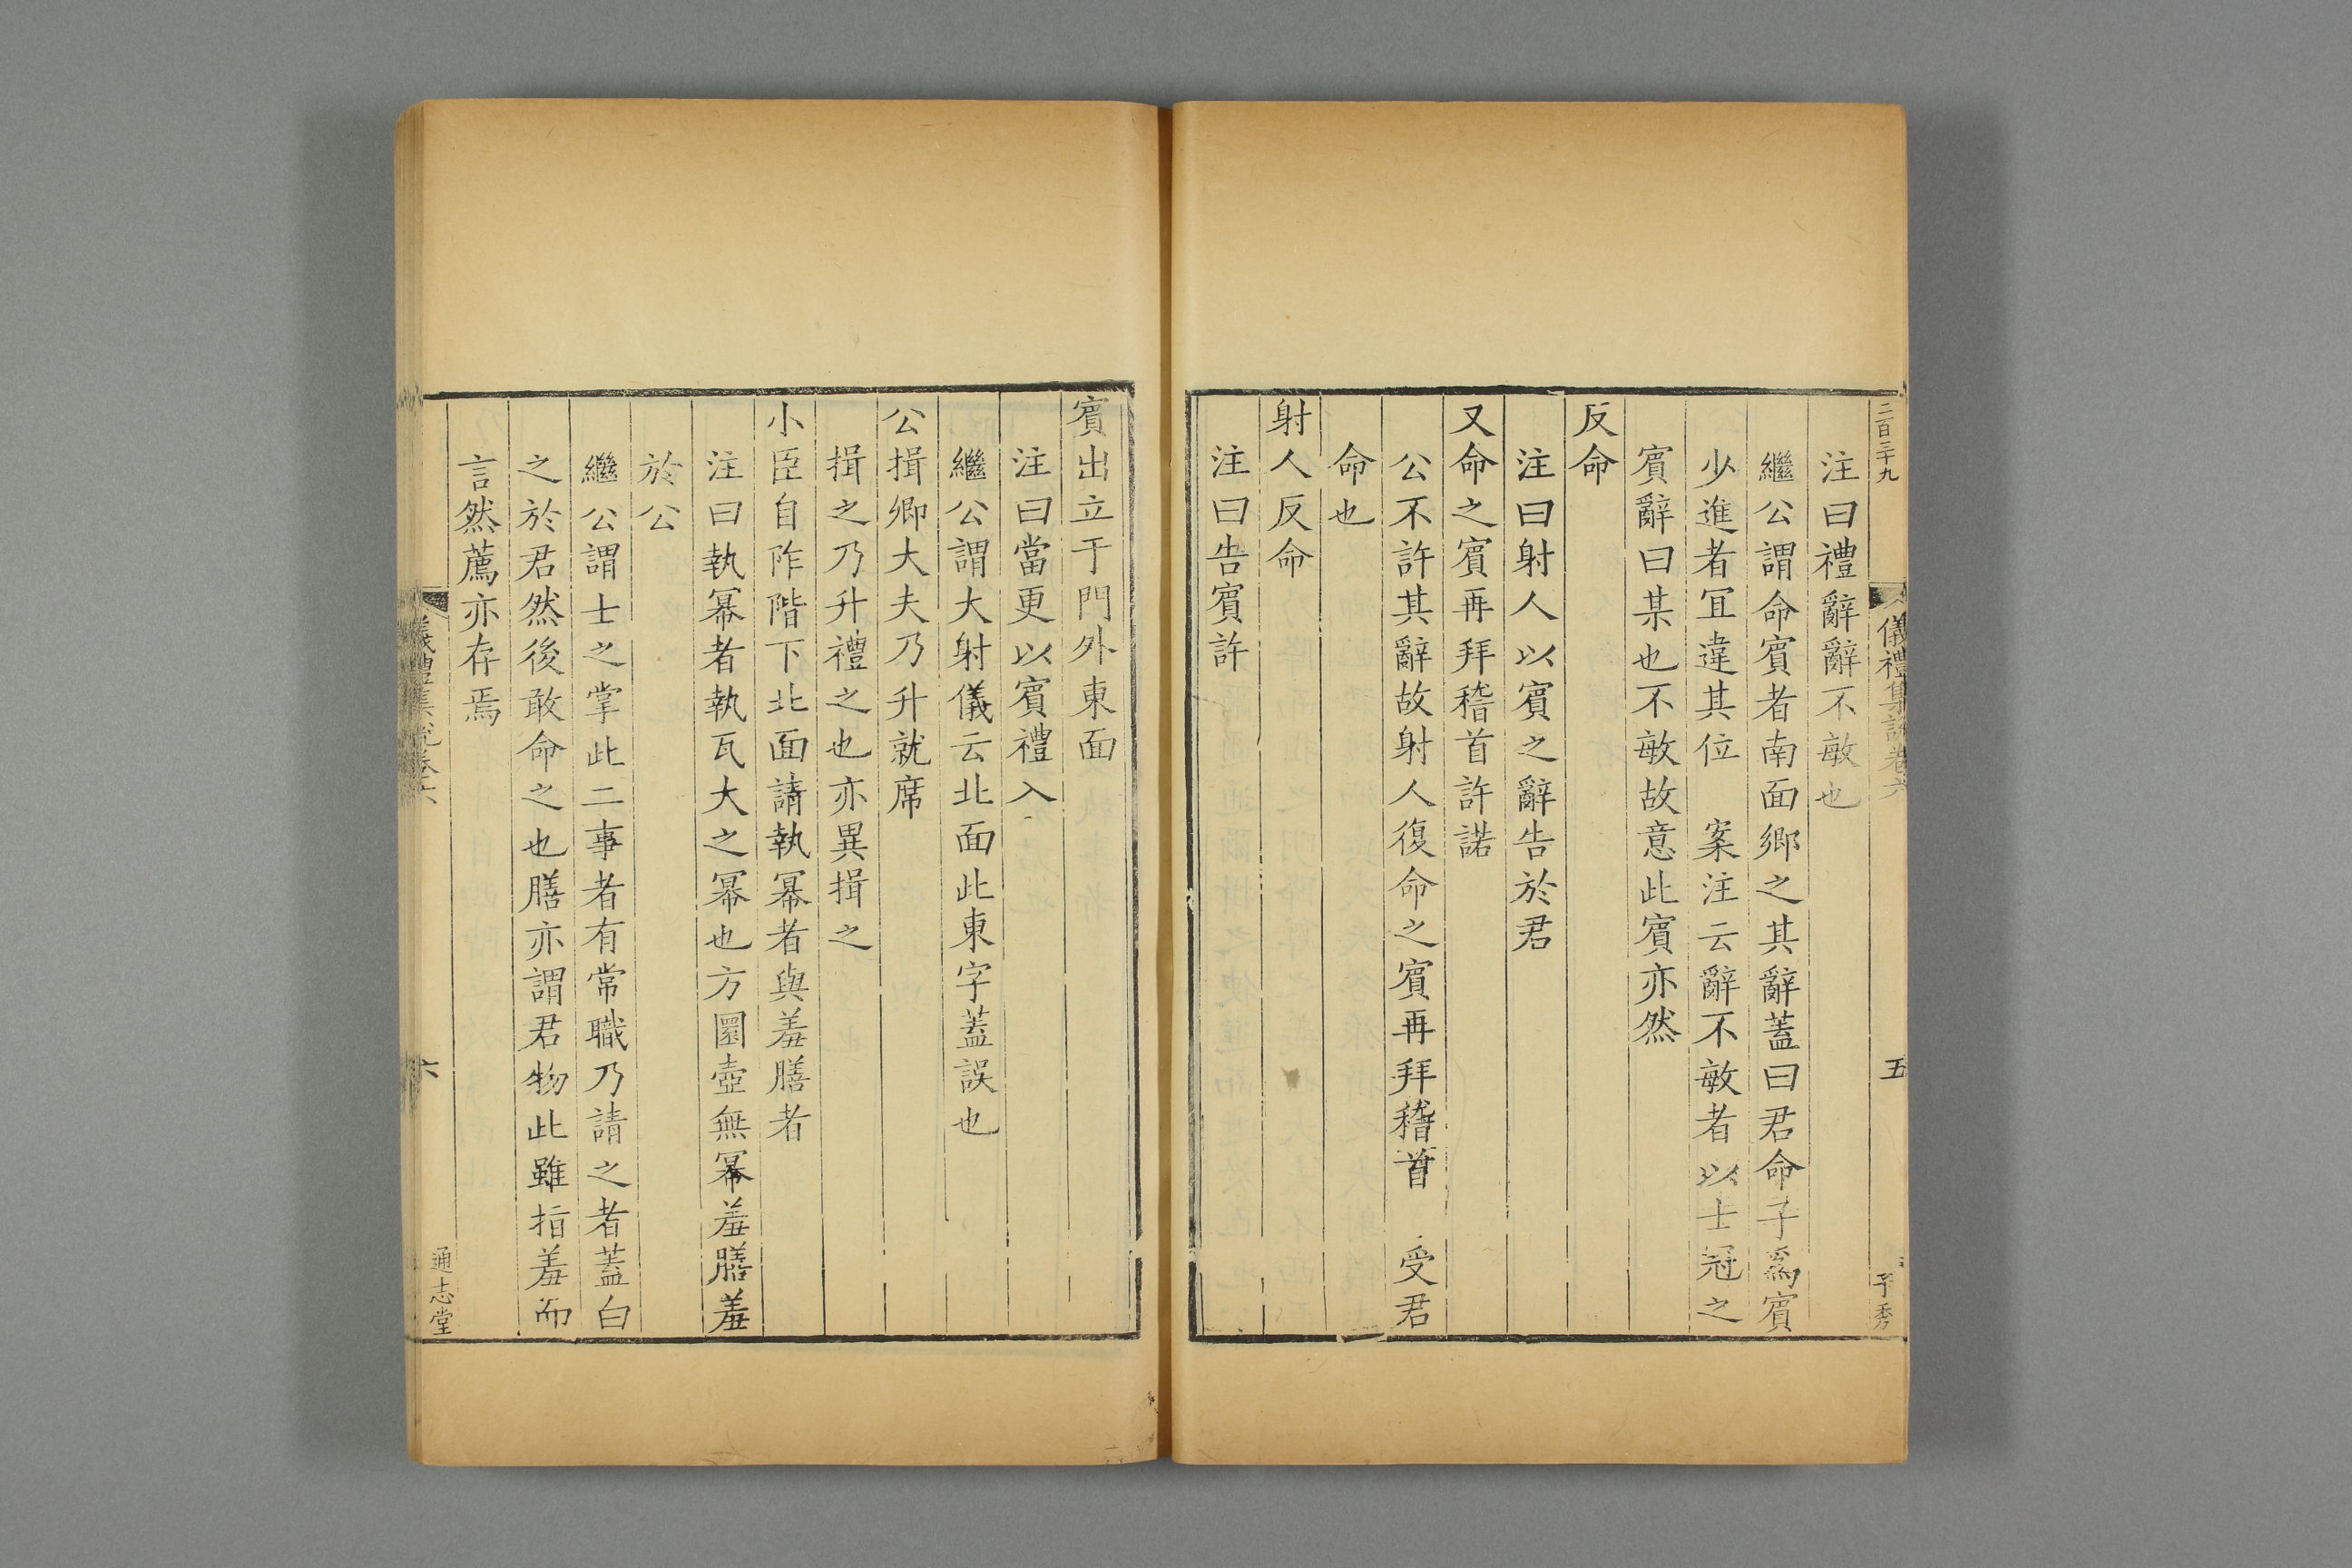 二百三十九
儀禮集說卷六
五
子秀
注曰禮辭辭不敏也
繼公謂命賓者南面鄉之其辭蓋曰君命子爲賓
少進者宜違其位　案注云辭不敏者以士冠之
賓辭曰某也不敏故意此賓亦然
反命
注曰射人以賓之辭告於君
又命之賓再拜稽首許諾
公不許其辭故射人復命之賓再拜稽首　受君
命也
射人反命
注曰告賓許
賓出立于門外東面
注曰當更以賓禮入
繼公謂大射儀云北面此東字蓋誤也
公揖卿大夫乃升就席
揖之乃升禮之也亦異揖之
小臣自阼階下北面請執冪者與羞膳者
注曰執冪者執瓦大之冪也方圜壺無冪羞膳羞
於公
繼公謂士之掌此二事者有常職乃請之者蓋白
之於君然後敢命之也膳亦謂君物此雖指羞而
言然薦亦存焉
儀禮集說卷六
六
通志堂